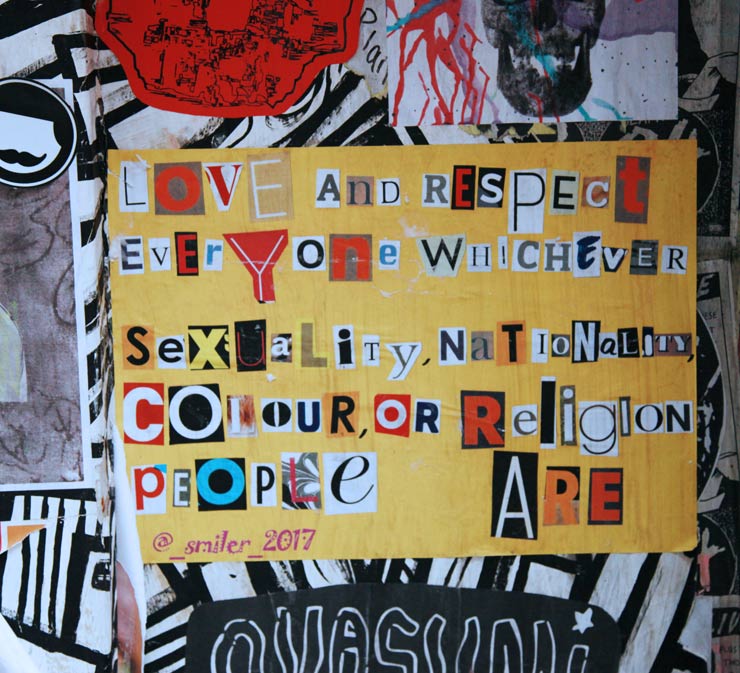 LOVE AND RESPECT
EVERYONE WHICHEVER
SEXUALITY, NATIONALITY,
COLOUR, OR RELIGION
PEOPLE ARE
@_smiler_2017